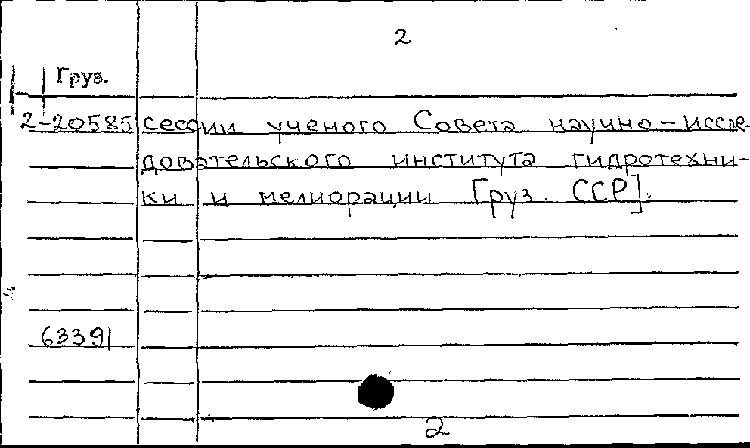 2
Груз.
2-20585 сессии ученого Совета научно-иссле-
довательского института гидротехни-
ки и мелиорации Груз. ССР].
63391
2